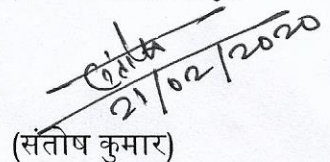 संतोष
21/02/2020
(संतोष कुमार)